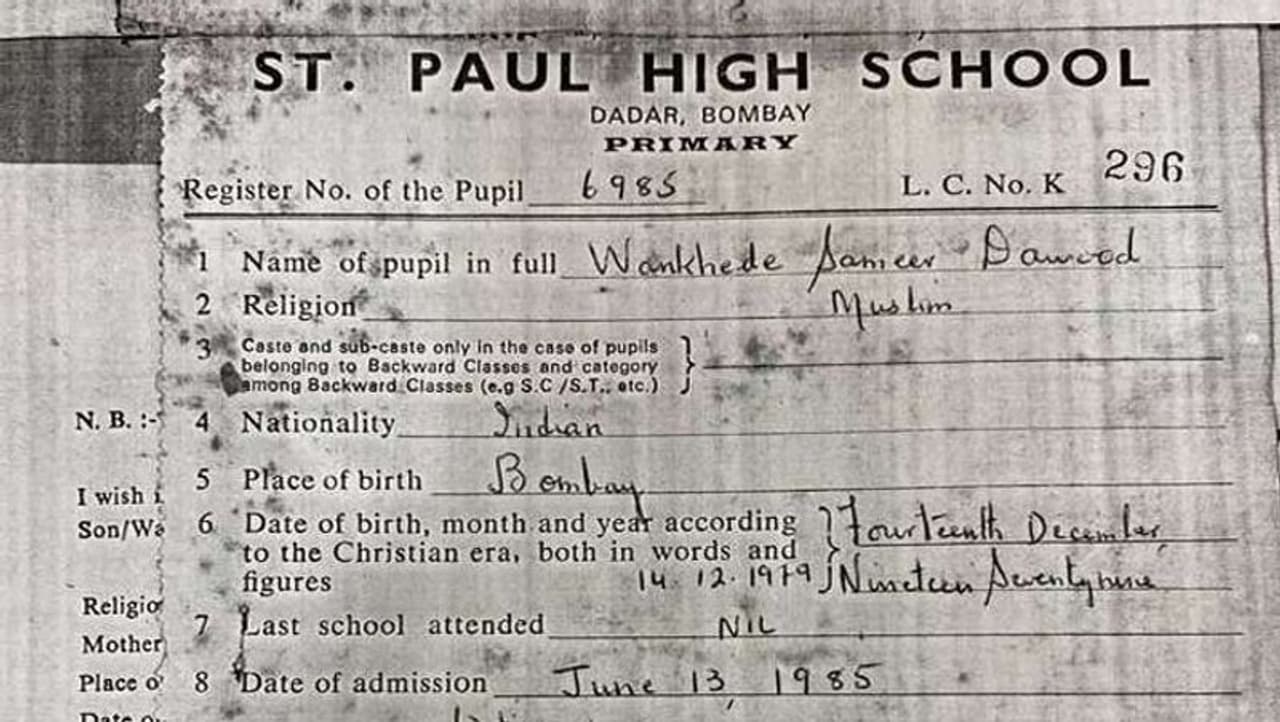 ST. PAUL HIGH SCHOOL
DADAR, BOMBAY
PRIMARY
Register No. of the Pupil 6985 L. C. No. K 296
1 Name of pupil in full Wankhede Sameer Dawood
2 Religion Muslim
3 Caste and sub-caste only in the case of pupils
belonging to Backward Classes and category
among Backward Classes (e.g S.C /S.T., etc.)
N. B. :- 4 Nationality Indian
5 Place of birth Bombay
I wish
Son/Wa 6 Date of birth, month and year according Fourteenth December
to the Christian era, both in words and
figures 14.12.1979 Nineteen Seventynine
Religio
7 Last school attended NIL
Mother
Place o 8 Date of admission June 13, 1985
Date o